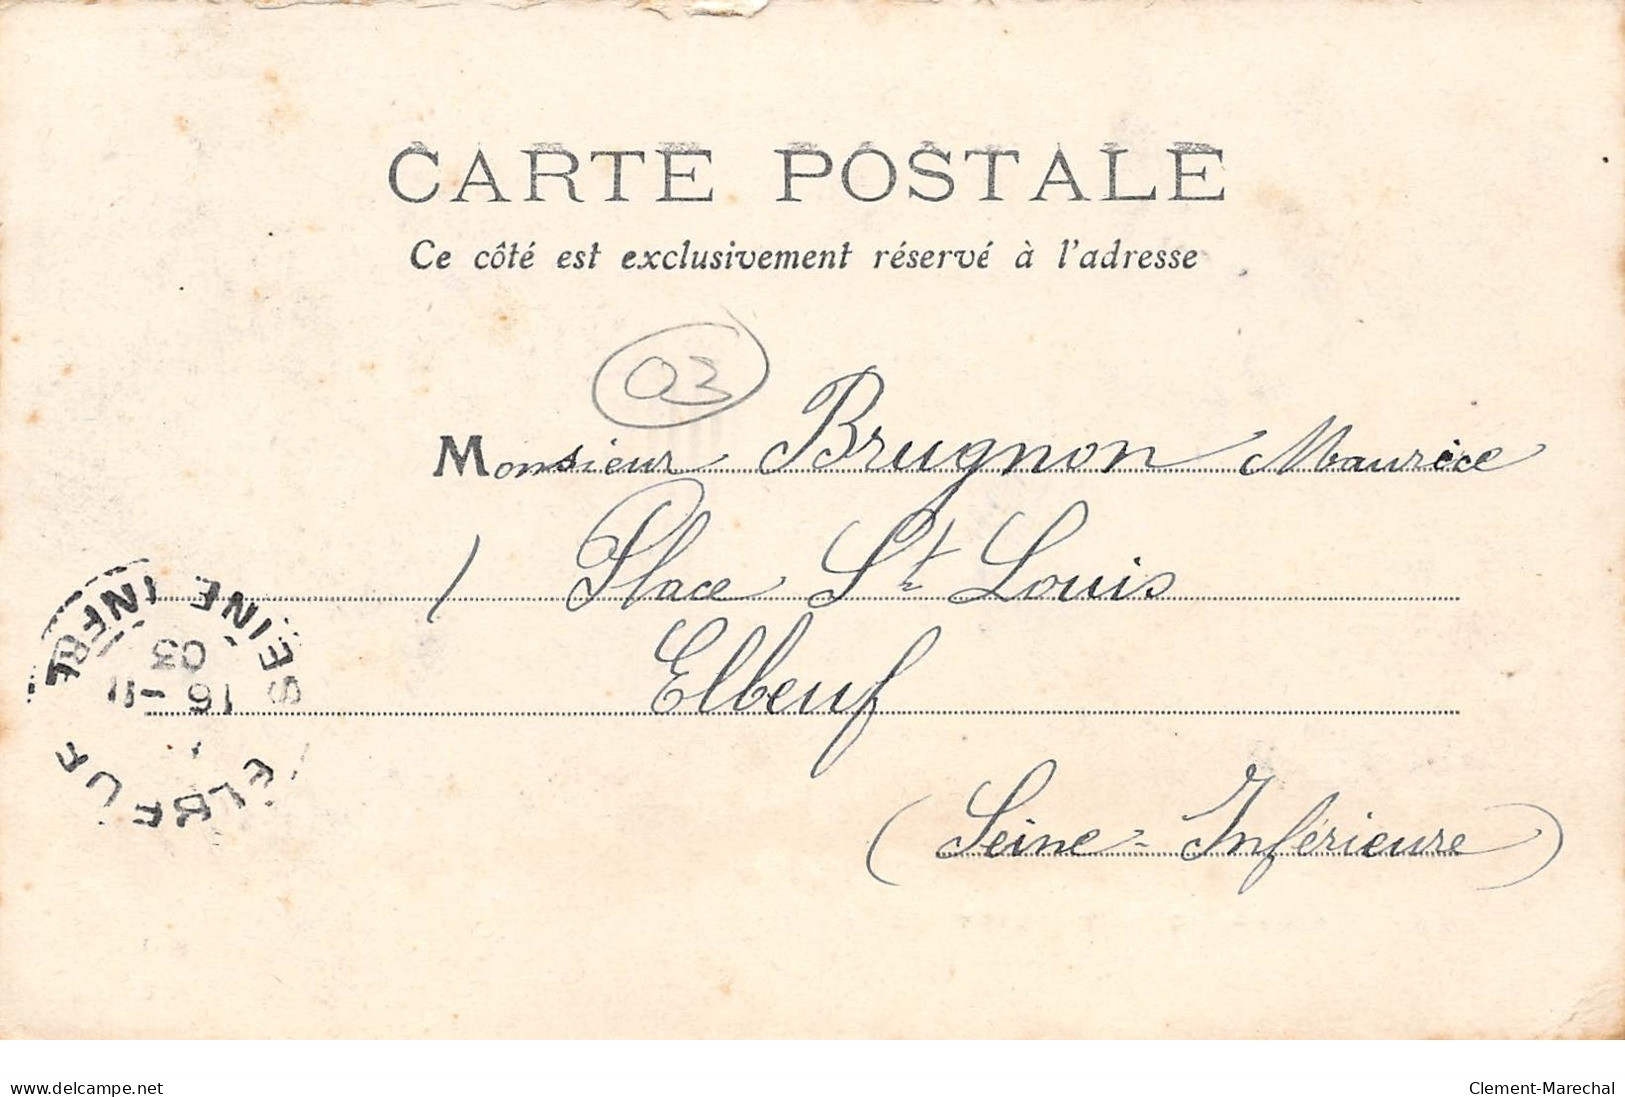 CARTE POSTALE
Ce côté est exclusivement réservé à l'adresse
03
Monsieur Brugnon Maurice
Place St Louis
Elbeuf
(Seine-Inférieure)
ELBEUF
SEINE INFRE
16 - 11
03
www.delcampe.net
Clement-Marechal